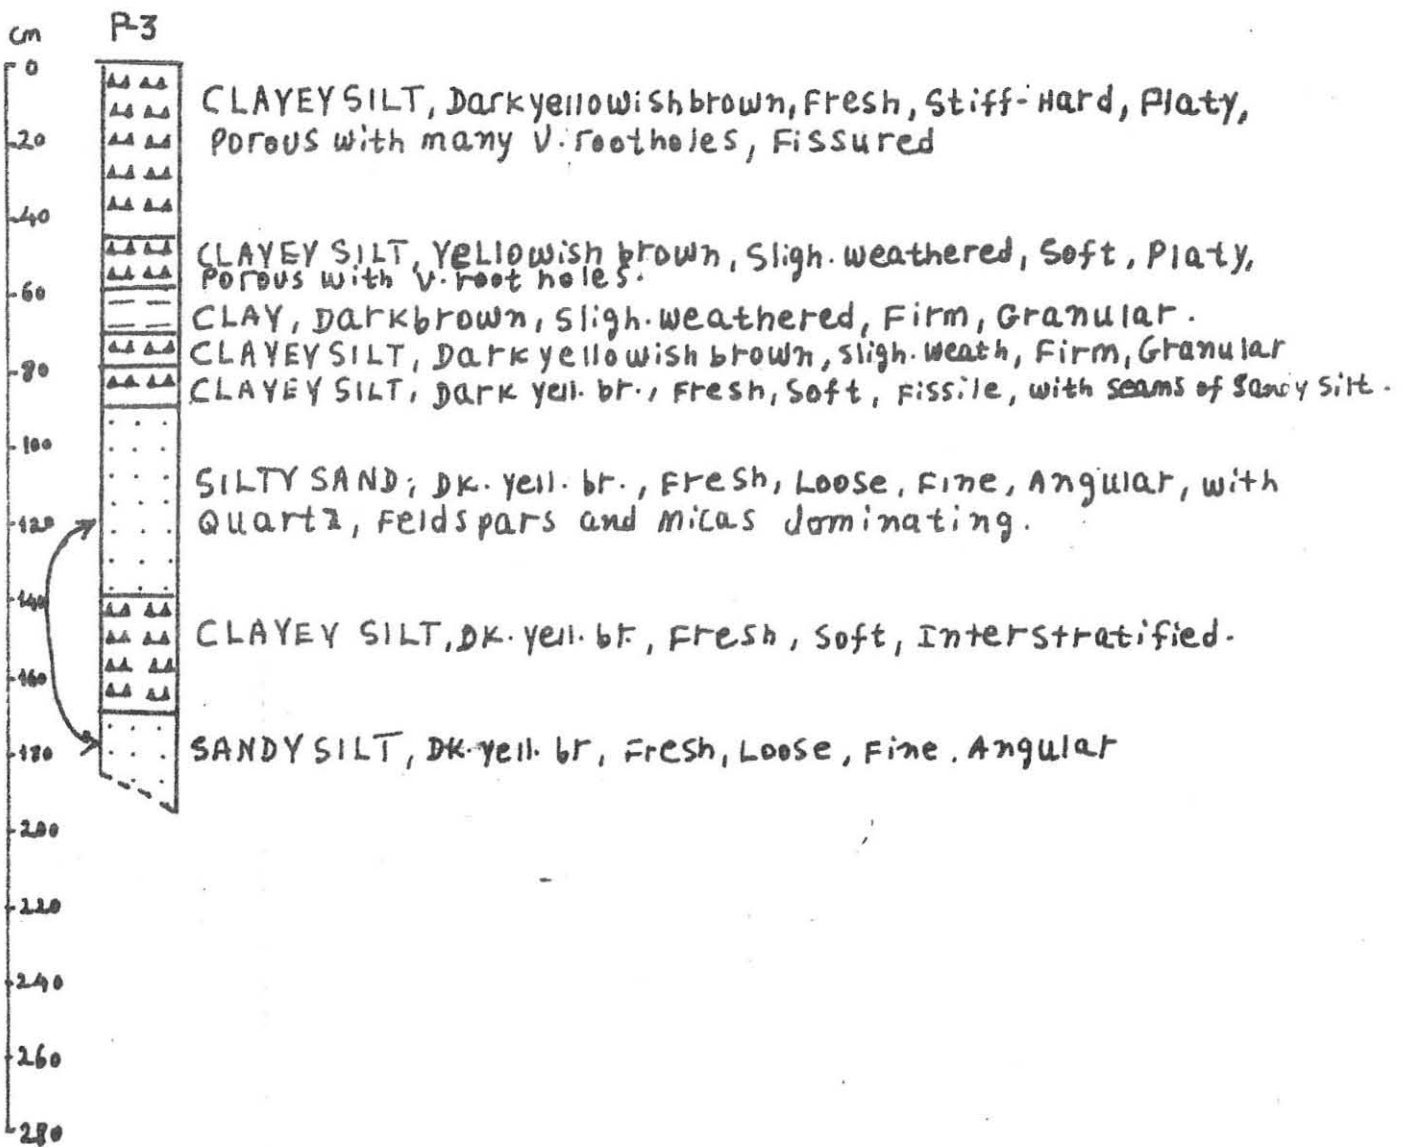 cm P-3
0
CLAYEY SILT, Dark yellowish brown, Fresh, Stiff-Hard, Platy,
20
Porous with many V. rootholes, Fissured
40
CLAYEY SILT, Yellowish brown, Sligh. weathered, Soft, Platy,
Porous with V. root holes.
60
CLAY, Dark brown, Sligh. weathered, Firm, Granular.
CLAYEY SILT, Dark yellowish brown, Sligh. weath, Firm, Granular
80
CLAYEY SILT, Dark yell. br., Fresh, Soft, Fissile, with seams of Sandy Silt.
100
SILTY SAND; DK. yell. br., Fresh, Loose, Fine, Angular, with
120
Quartz, Feldspars and Micas dominating.
140
CLAYEY SILT, DK. yell. br., Fresh, Soft, Interstratified.
160
180
SANDY SILT, DK. yell. br, Fresh, Loose, Fine. Angular
200
220
240
260
280